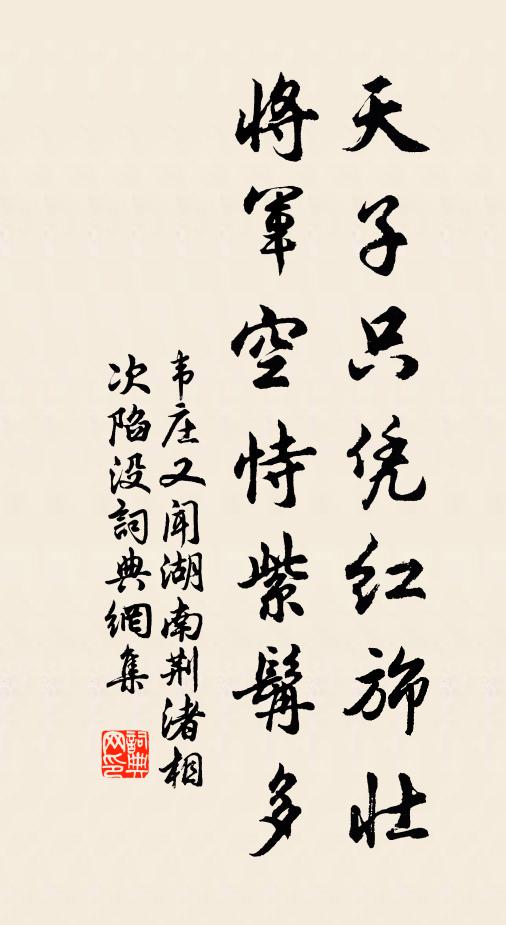 天子只凭红旆壮
将军空恃紫髯多
韦庄又闻湖南荆渚相
次陷没词典网集
詞典
网印